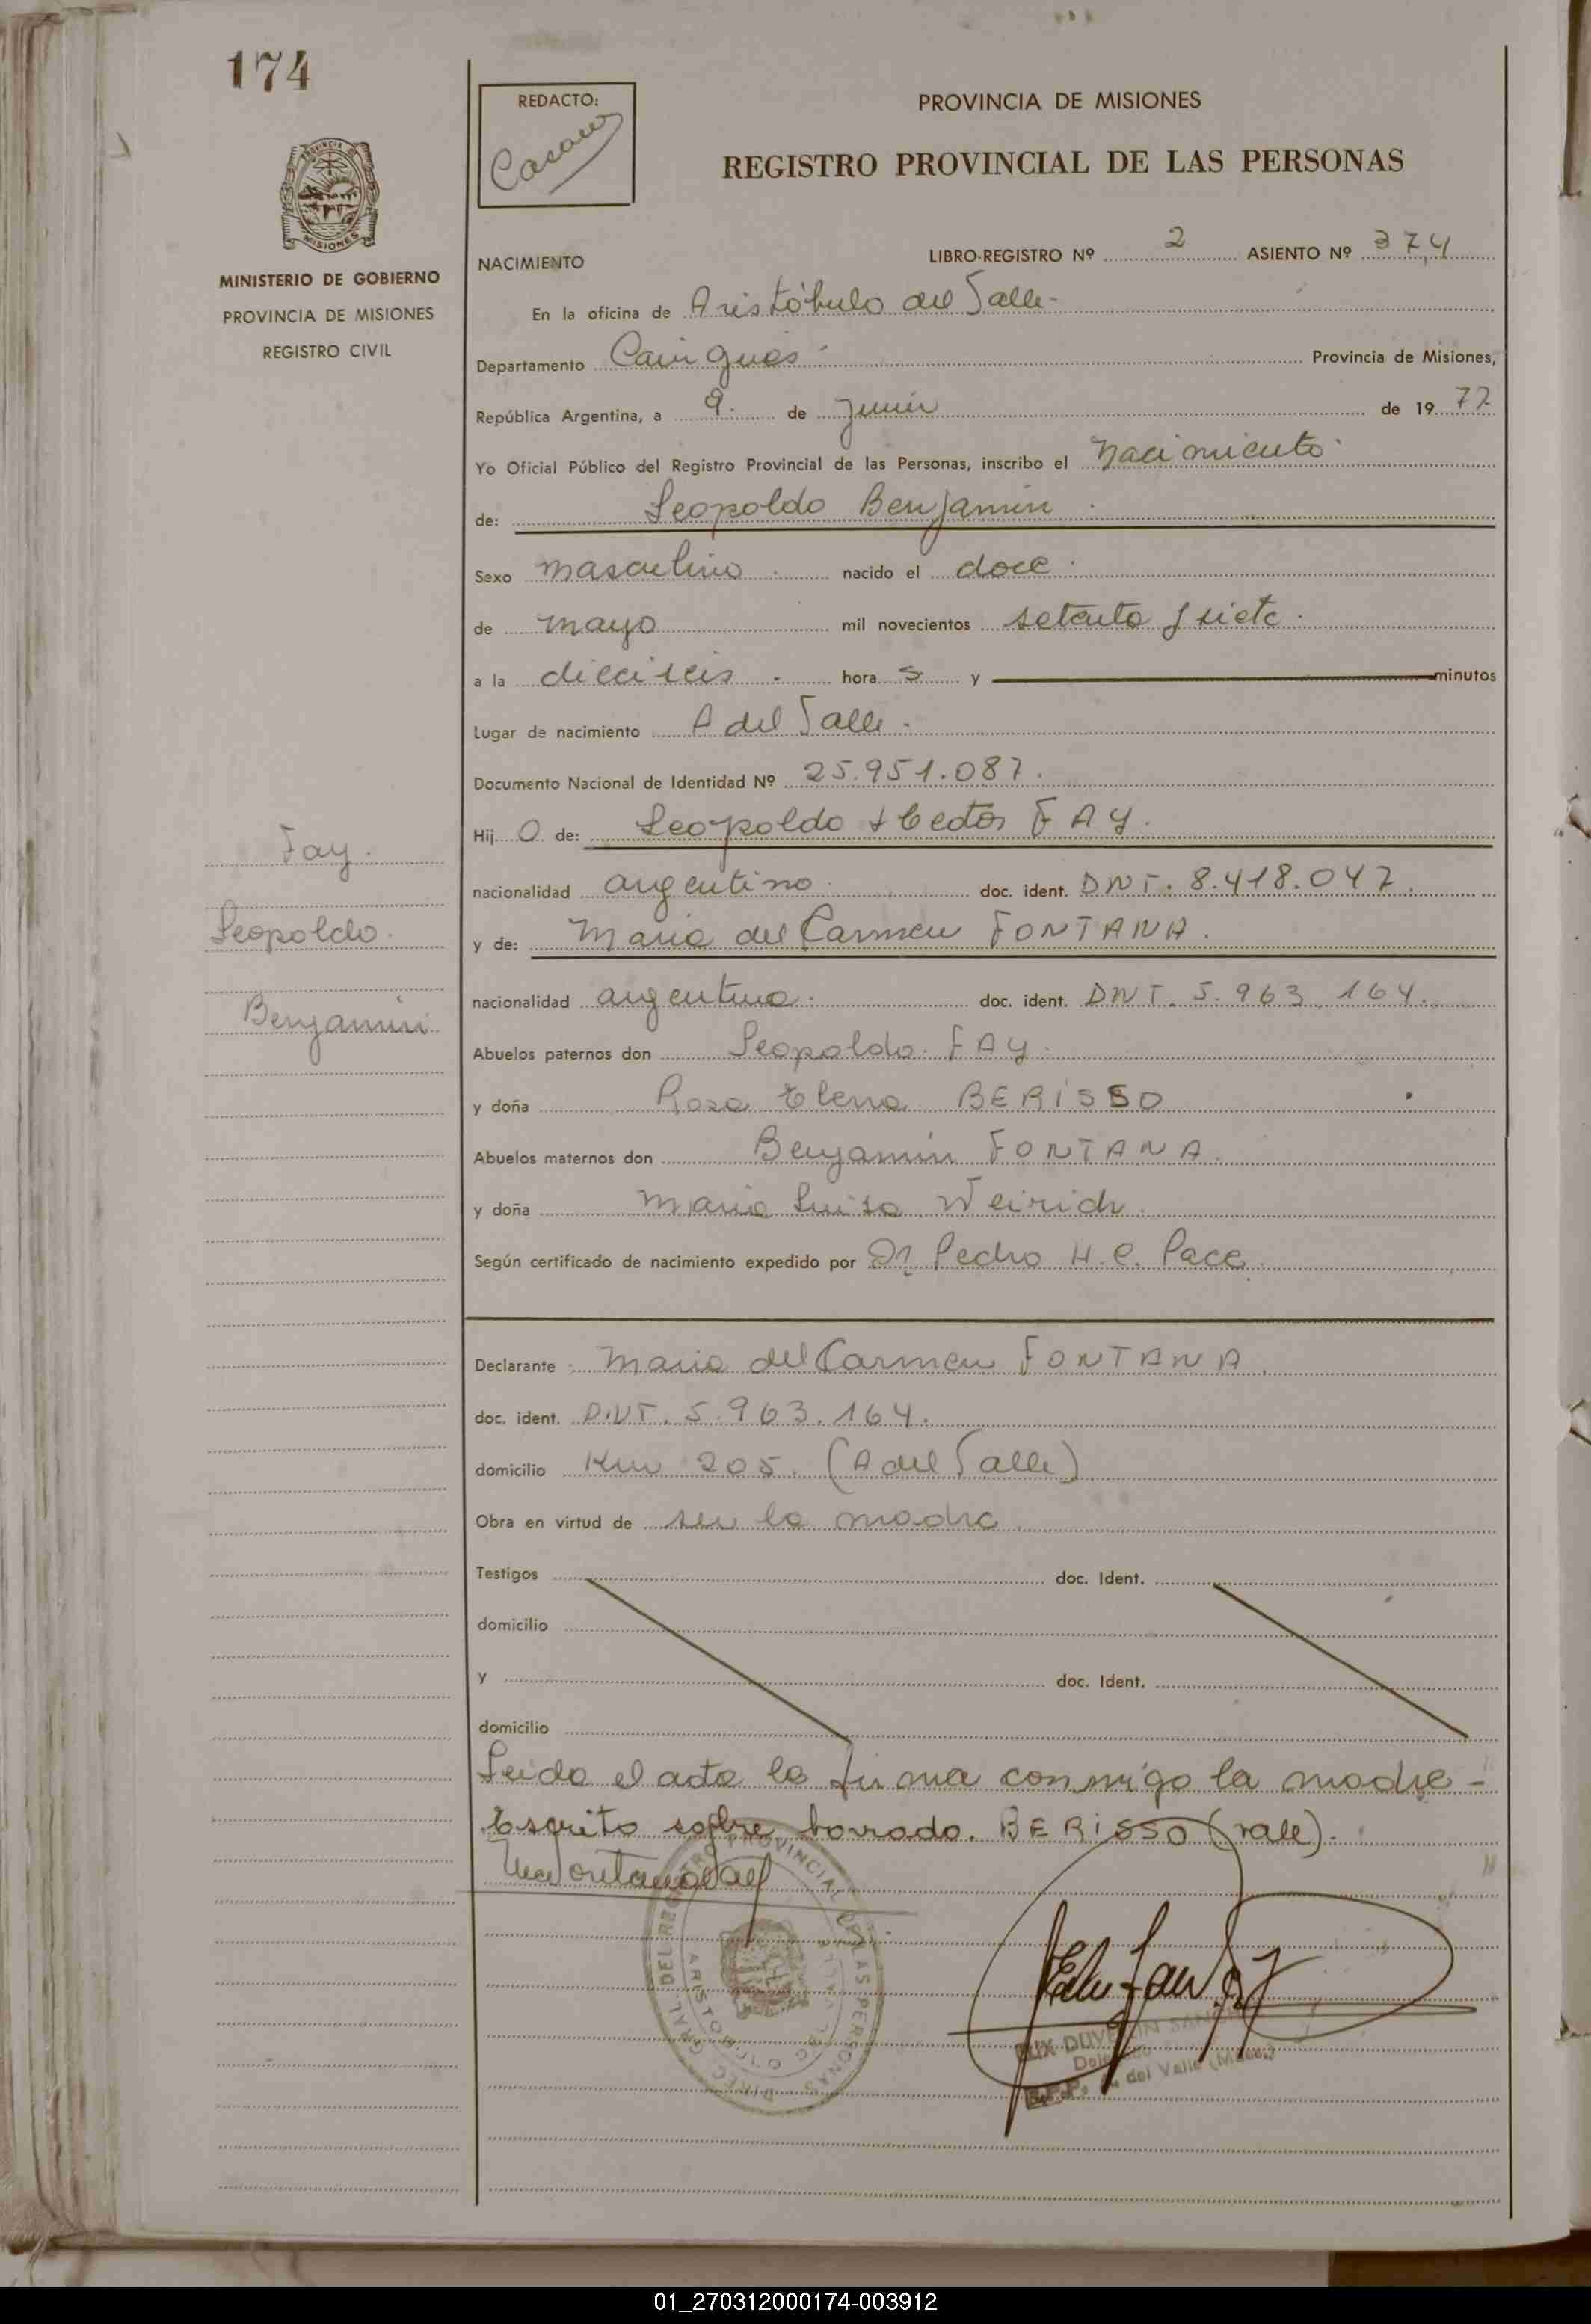 174
REDACTO:
PROVINCIA DE MISIONES
REGISTRO PROVINCIAL DE LAS PERSONAS
MINISTERIO DE GOBIERNO
PROVINCIA DE MISIONES
REGISTRO CIVIL
NACIMIENTO LIBRO-REGISTRO Nº 2 ASIENTO Nº 374
En la oficina de Aristóbulo del Valle-
Departamento Cainguás Provincia de Misiones,
República Argentina, a 9. de junio de 19 77
Yo Oficial Público del Registro Provincial de las Personas, inscribo el Nacimiento
de: Leopoldo Benjamín
Sexo masculino nacido el doce
de mayo mil novecientos setenta y siete
a la dieciseis hora s y minutos
Lugar de nacimiento A del Valle
Documento Nacional de Identidad Nº 25.951.087.
Hij O de: Leopoldo Hector FAY.
nacionalidad argentino doc. ident. DNI. 8.418.047.
y de: Maria del Carmen FONTANA.
nacionalidad argentina doc. ident. DNI. 5.963.164.
Abuelos paternos don Leopoldo FAY
y doña Rosa Elena BERISSO
Abuelos maternos don Benjamin FONTANA.
y doña Maria Luisa Weirich.
Según certificado de nacimiento expedido por Dr Pedro H.C. Pace
Fay.
Leopoldo
Benjamín
Declarante Maria del Carmen FONTANA.
doc. ident. DNI. 5.963.164.
domicilio Km 205. (A del Valle)
Obra en virtud de ser la madre
Testigos doc. Ident.
domicilio
y doc. Ident.
domicilio
Leida el acta la firma conmigo la madre -
Escrito sobre borrado. BERISSO (vale).
DIREC. GRAL. DEL REGISTRO PROVINCIAL DE LAS PERSONAS
ARISTOBULO
del Valle
01_270312000174-003912